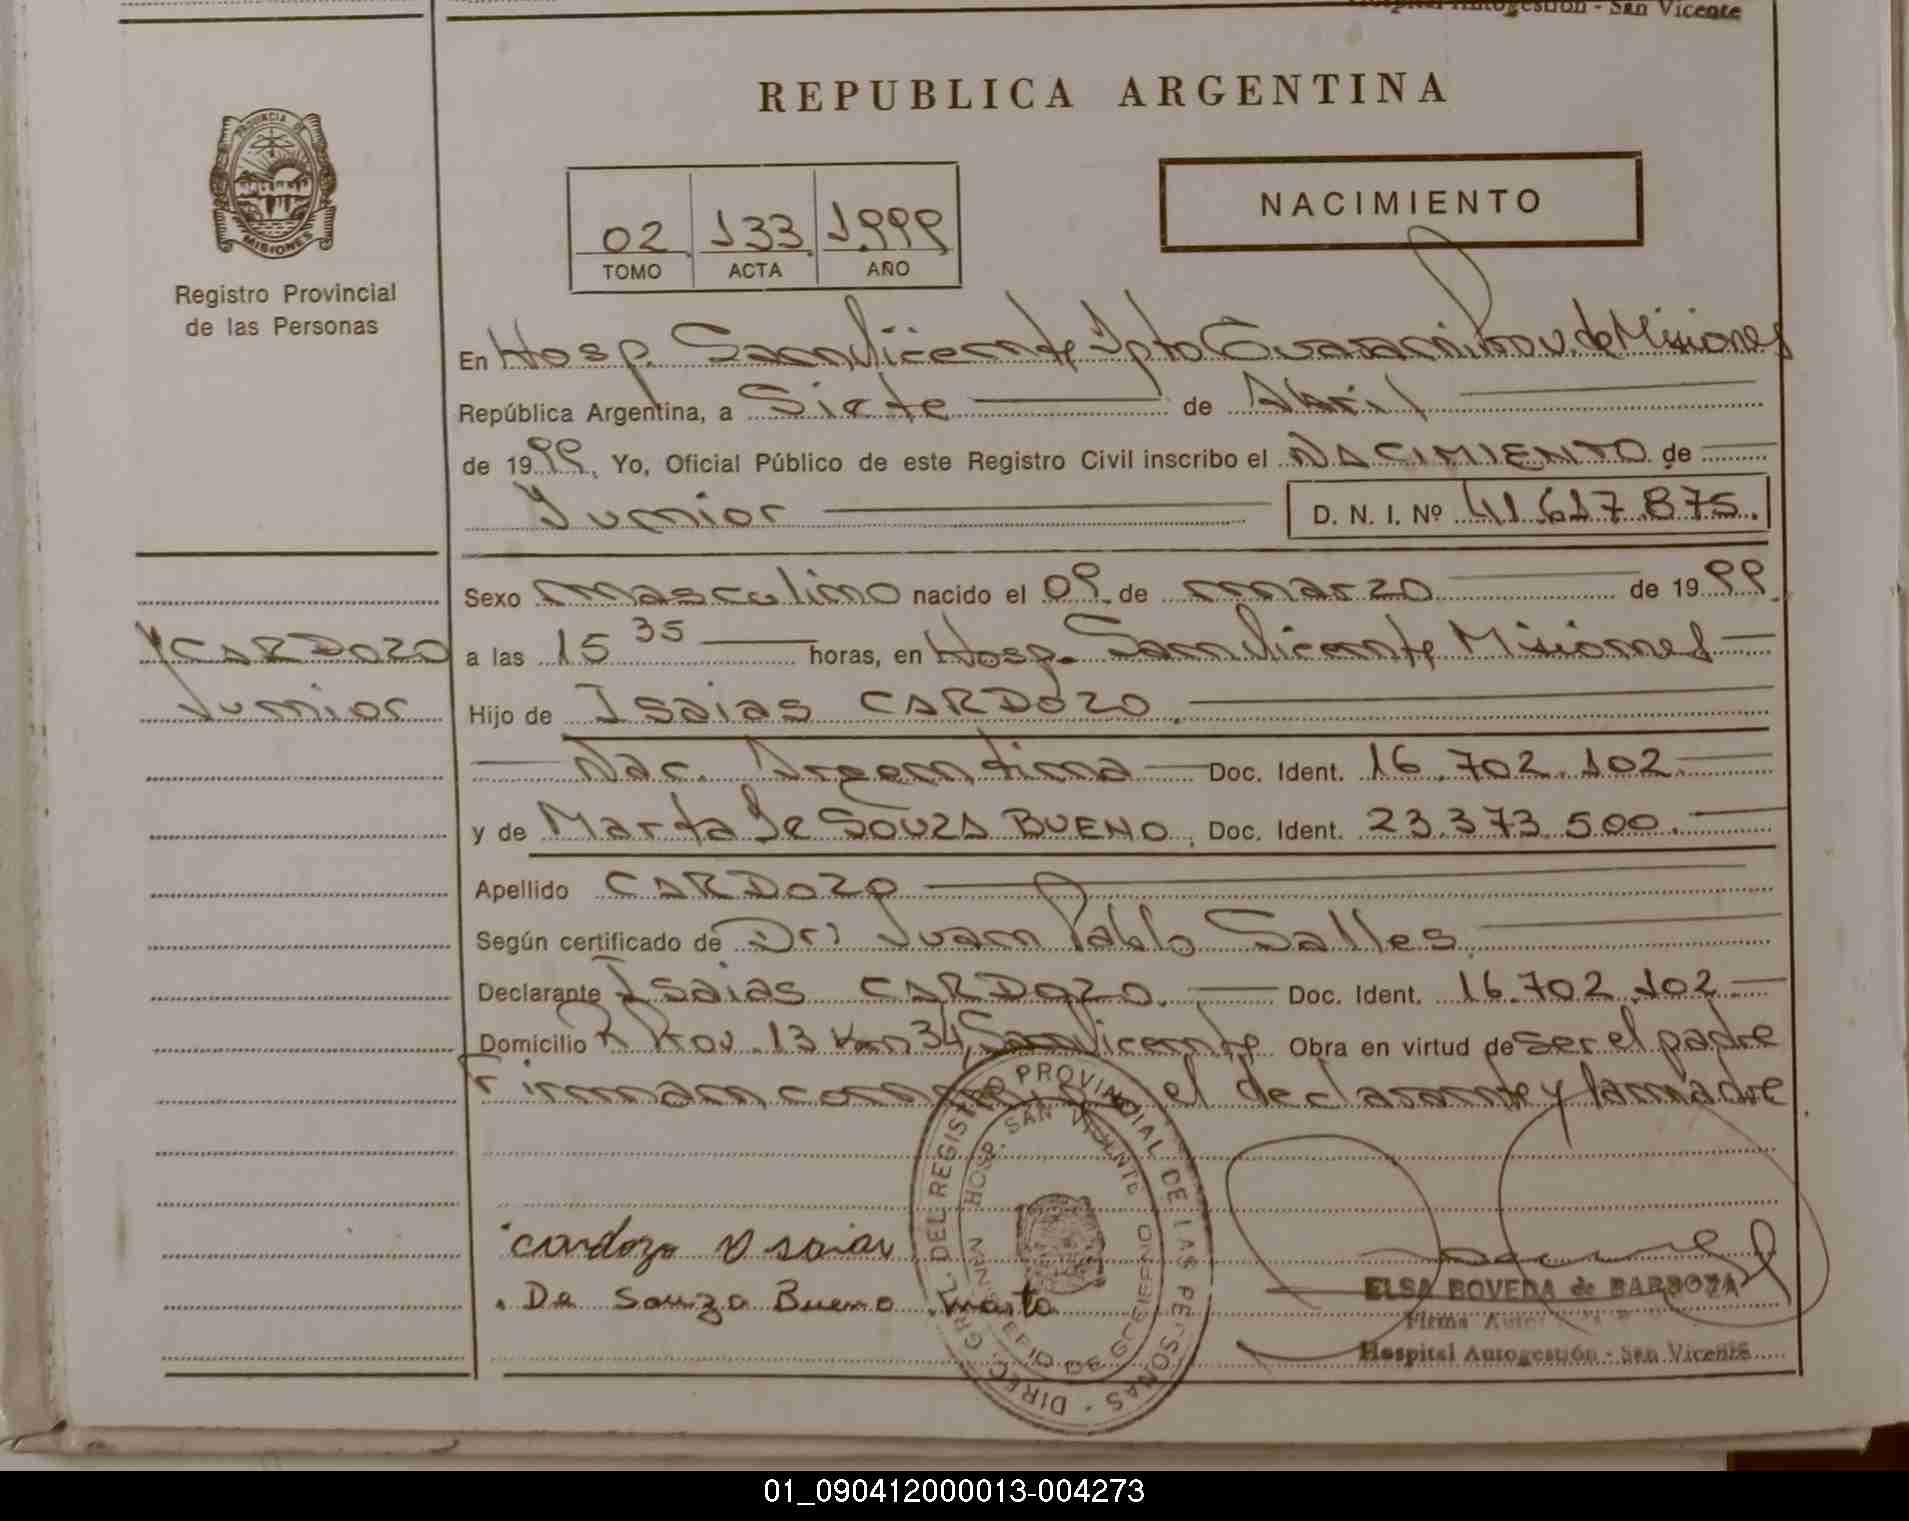 Hospital Autogestión - San Vicente
REPUBLICA ARGENTINA
PROVINCIA DE
MISIONES
Registro Provincial
de las Personas
02 133 1999
TOMO ACTA AÑO
NACIMIENTO
En Hosp. San Vicente Dpto Guaraní Prov. de Misiones
República Argentina, a Siete de Abril
de 1999, Yo, Oficial Público de este Registro Civil inscribo el NACIMIENTO de
Junior D. N. I. Nº 41.617.875.
Sexo masculino nacido el 09 de marzo de 1999
CARDOZO
Junior
a las 15 35 horas, en Hosp. San Vicente Misiones
Hijo de Isaias CARDOZO.
Nac. Argentina Doc. Ident. 16.702.102.
y de Marta De SOUZA BUENO. Doc. Ident. 23.373.500.
Apellido CARDOZO
Según certificado de Dr: Juan Pablo Salles.
Declarante Isaias CARDOZO. Doc. Ident. 16.702.102.
Domicilio R Prov. 13 Km 34, San Vicente Obra en virtud de ser el padre
Firman conmigo el declarante y la madre
DIREC. GRL. DEL REGISTRO PROVINCIAL DE LAS PERSONAS
HOSP. SAN VICENTE
MINISTERIO DE GOBIERNO
cardozo Isaias
De Souza Bueno Marta
ELSA BOVEDA de BARBOZA
Firma
Hospital Autogestión - San Vicente
01_090412000013-004273